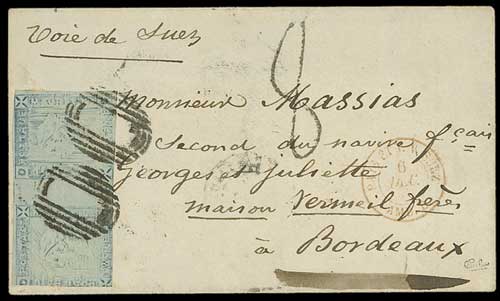 Voie de Suez
8
Monsieur Massias
Second du navire fçais
Georges et Juliette
maison Vermeil frères
à Bordeaux
6